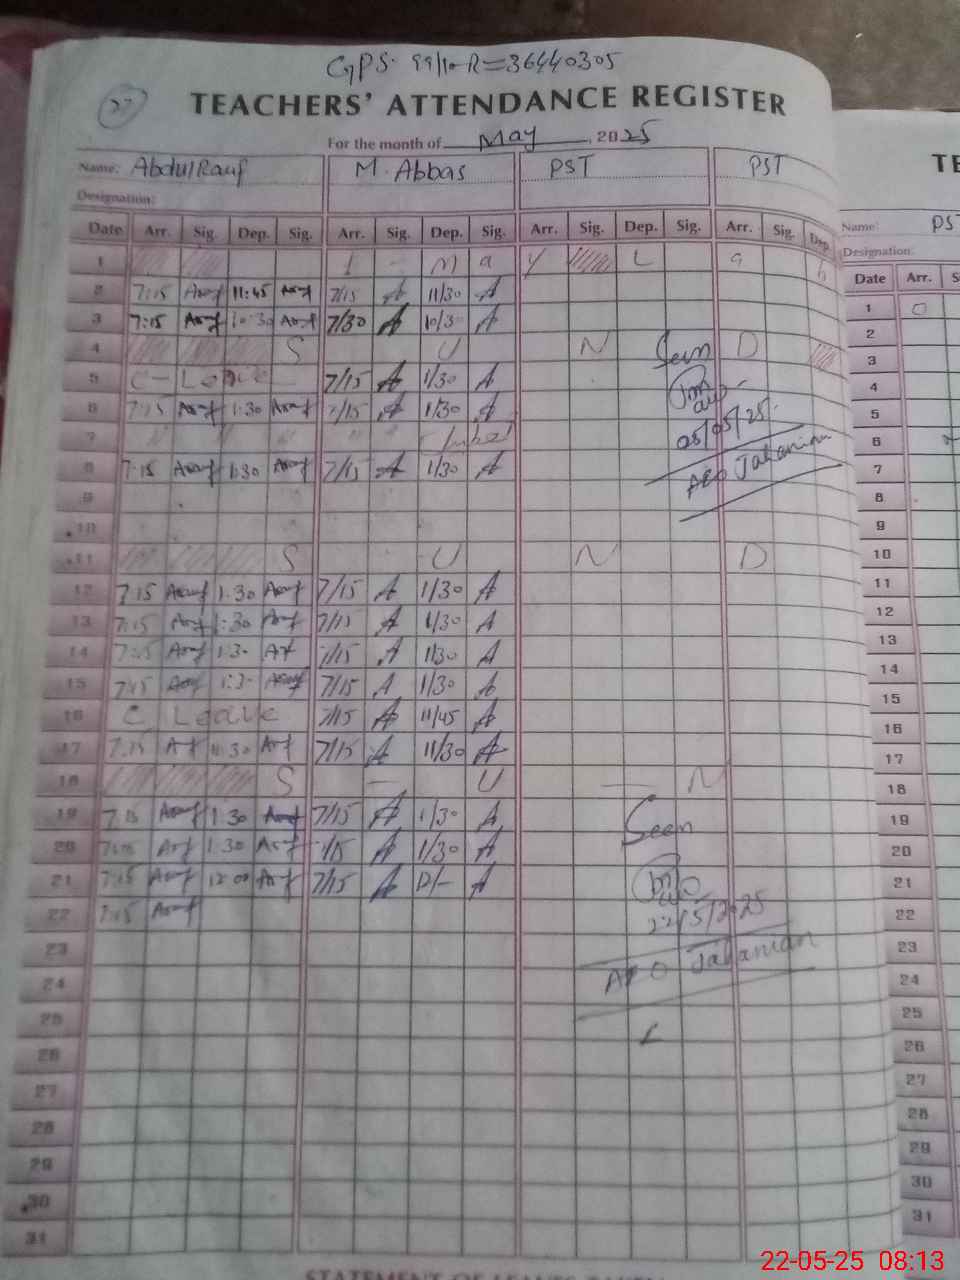 GPS. 99/10-R=36440305
27
TEACHERS' ATTENDANCE REGISTER
For the month of May, 2025
Name: Abdul Rauf M. Abbas PST PST
Designation:
Date Arr. Sig. Dep. Sig. Arr. Sig. Dep. Sig. Arr. Sig. Dep. Sig. Arr. Sig. Dep.
1 M a y L
2 7:15 11:45 7/15 A 11/30 A
3 7:15 10:30 7/30 A 10/30 A
4 S U N D
Seen
5 C- Leave 7/15 A 1/30 A
6 7:15 1:30 7/15 A 1/30 A
05/05/25.
7
AEO Jahanian
8 7:15 1:30 7/15 A 1/30 A
9
10
11 S U N D
12 7:15 1:30 7/15 A 1/30 A
13 7:15 1:30 7/15 A 1/30 A
14 7:15 1:30 7/15 A 1/30 A
15 7:15 1:30 7/15 A 1/30 A
16 C Leave 7/15 A 11/45 A
17 7:15 11:30 7/15 A 11/30 A
18 S - U - N
19 7:15 1:30 7/15 A 1/30 A
Seen
20 1:30 7/15 A 1/30 A
21 7:15 12:00 7/15 A 12/- A
22 7:15
22/5/2025
23
AEO Jahanian
24
25
26
27
28
29
30
31
STATEMENT OF LEAVES TAKEN
TE
Name: PST
Designation:
Date Arr.
1
2
3
4
5
6
7
8
9
10
11
12
13
14
15
16
17
18
19
20
21
22
23
24
25
26
27
28
29
30
31
22-05-25 08:13